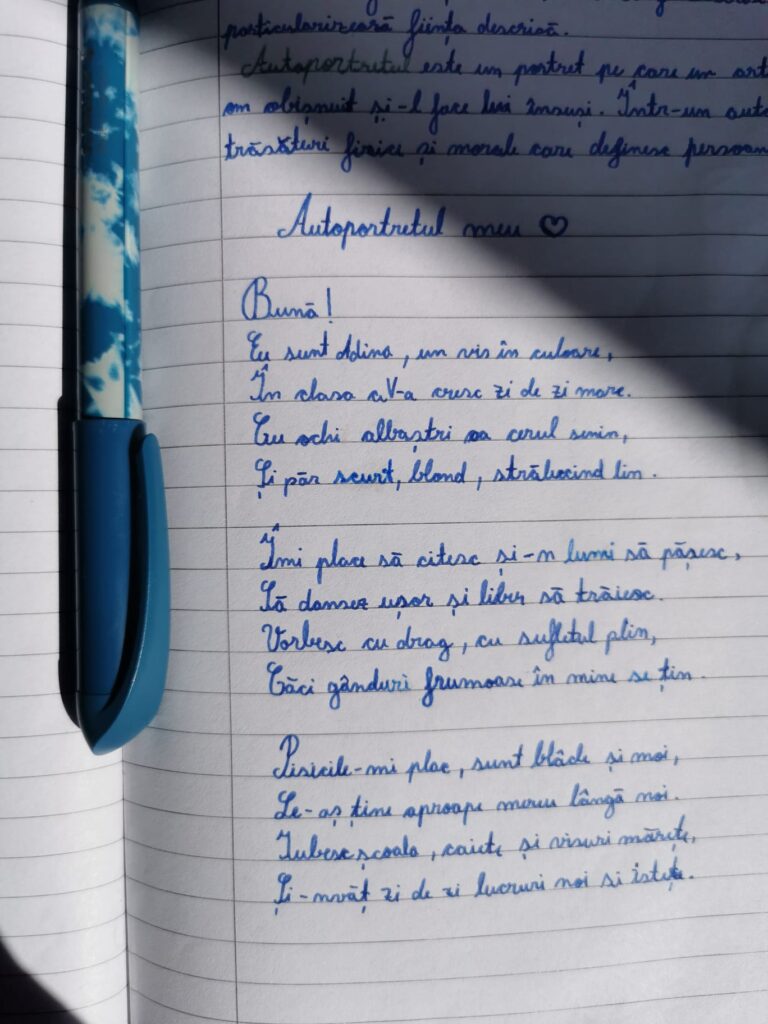 particularizează ființa descrisă.
Autoportretul este un portret pe care un
om obișnuit și-l face lui însuși. Într-un
trăsături fizice și morale care definesc
Autoportretul meu ♡
Bună!
Eu sunt Adina, un vis în culoare,
În clasa a V-a cresc zi de zi mare.
Cu ochi albaștri ca cerul senin,
Și păr scurt, blond, strălucind lin.
Îmi place să citesc și-n lumi să pășesc,
Să dansez ușor și liber să trăiesc.
Vorbesc cu drag, cu sufletul plin,
Căci gânduri frumoase în mine se țin.
Pisicile-mi plac, sunt blâde și moi,
Le-aș ține aproape mereu lângă noi.
Iubesc școala, caiete și visuri mărețe,
Și-nvăț zi de zi lucruri noi si istețe.